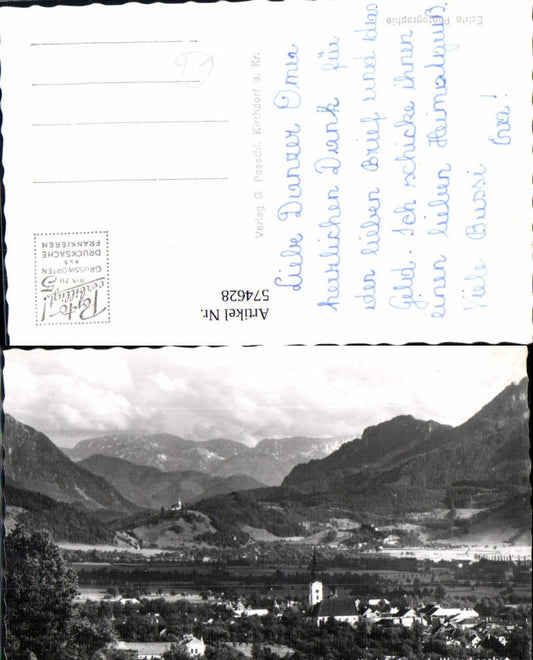 Echte Photographie
Liebe Danzer Oma
herzlichen Dank für
der lieben Brief und das
Geld. Ich schicke ihnen
einen lieben Heimatgruß.
Viele Bussi
Eva!
Verlag G. Paeschl, Kirchdorf a. Kr.
Porto-
verbilligt!
BIS ZU 5
GRUSSWORTEN
ALS
DRUCKSACHE
FRANKIEREN
Artikel Nr.
574628